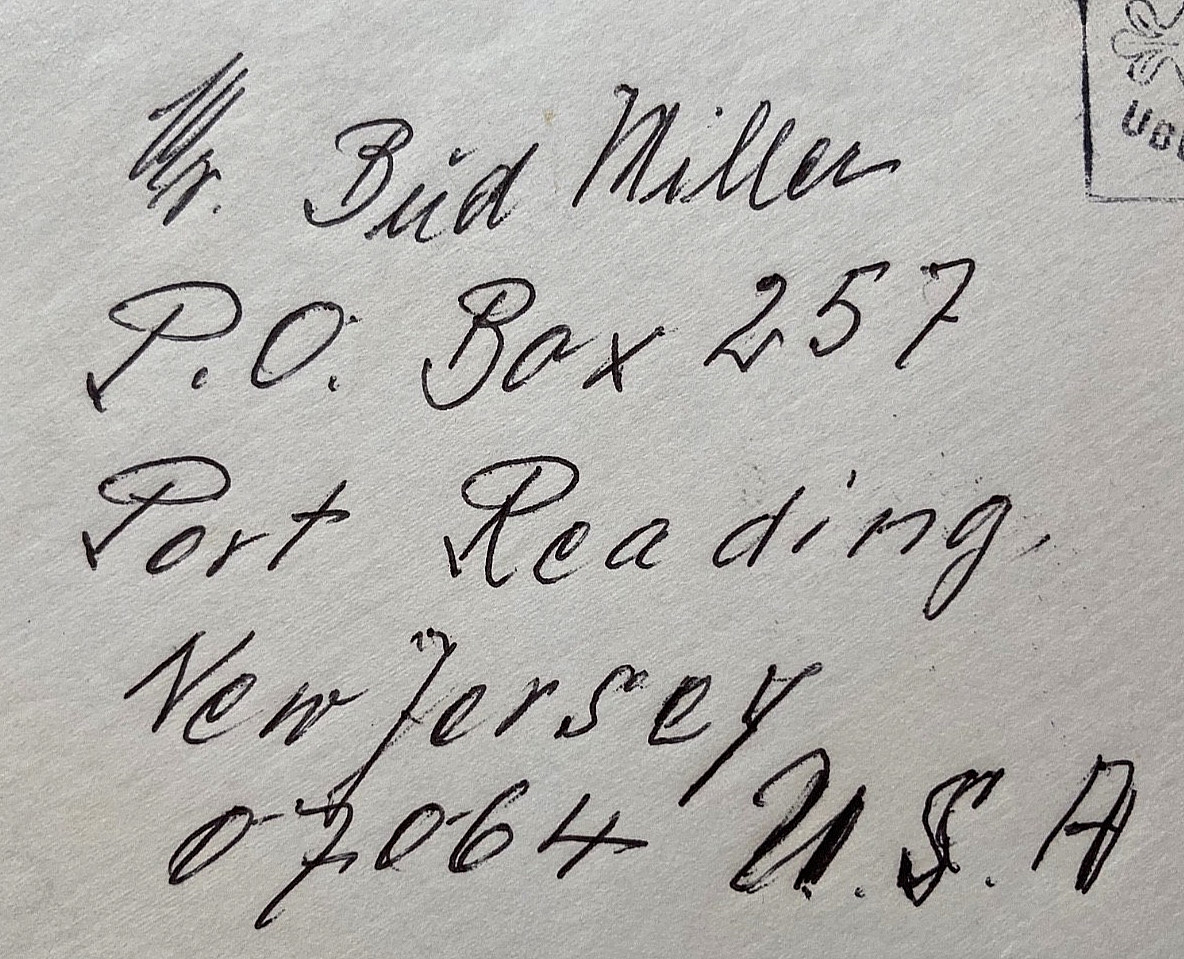 Mr. Bud Miller
P.O. Box 257
Port Reading,
New Jersey
07064 U.S.A